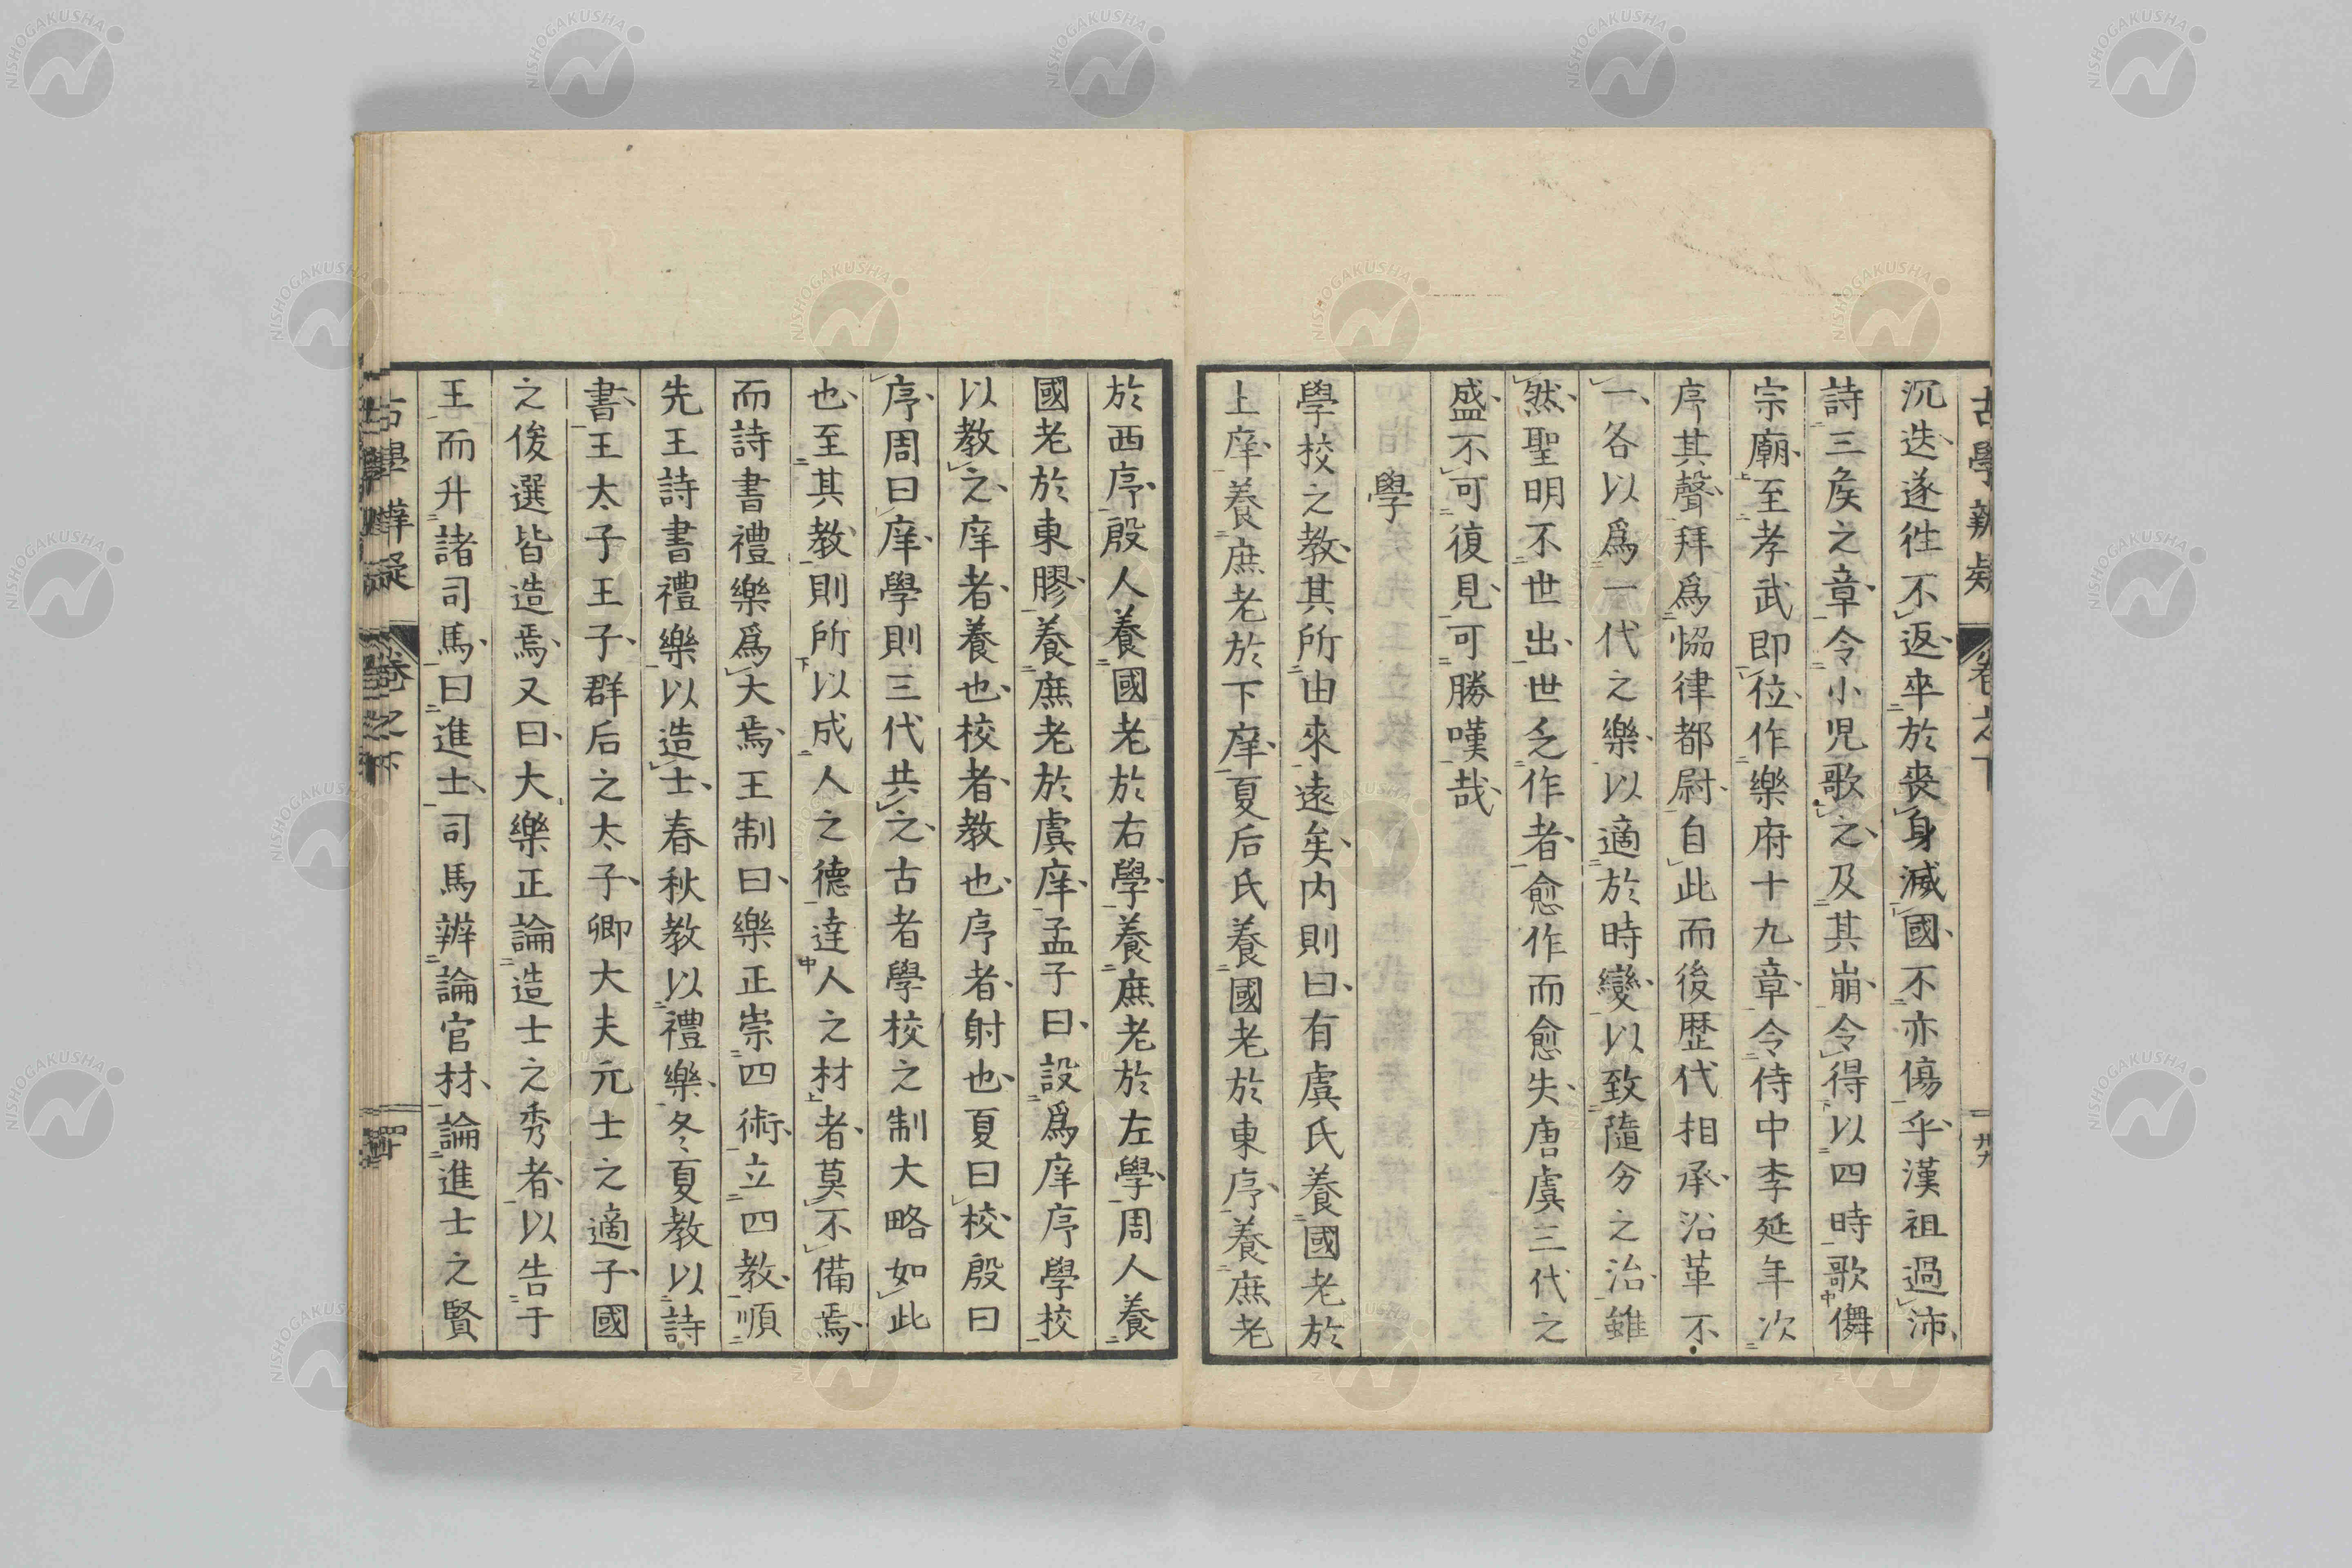 古學辨疑 卷之下 卅九
沉迭遂徃不返卒於喪身滅國不亦傷乎漢祖過沛
詩三矦之章令小児歌之及其崩令得以四時歌儛
宗廟至孝武即位作樂府十九章令侍中李延年次
序其聲拜爲恊律都尉自此而後歴代相承沿革不
一各以爲一代之樂以適於時變以致隨分之治雖
然聖明不世出世乏作者愈作而愈失唐虞三代之
盛不可復見可勝嘆哉
學
學校之教其所由來遠矣内則曰有虞氏養國老於
上庠養庶老於下庠夏后氏養國老於東序養庶老
於西序殷人養國老於右學養庶老於左學周人養
國老於東膠養庶老於虞庠孟子曰設爲庠序學校
以教之庠者養也校者教也序者射也夏曰校殷曰
序周曰庠學則三代共之古者學校之制大略如此
也至其教則所以成人之德達人之材者莫不備焉
而詩書禮樂爲大焉王制曰樂正崇四術立四教順
先王詩書禮樂以造士春秋教以禮樂冬夏教以詩
書王太子王子群后之太子卿大夫元士之適子國
之俊選皆造焉又曰大樂正論造士之秀者以告于
王而升諸司馬曰進士司馬辨論官材論進士之賢
古學辨疑 卷之下 四十
NISHOGAKUSHA